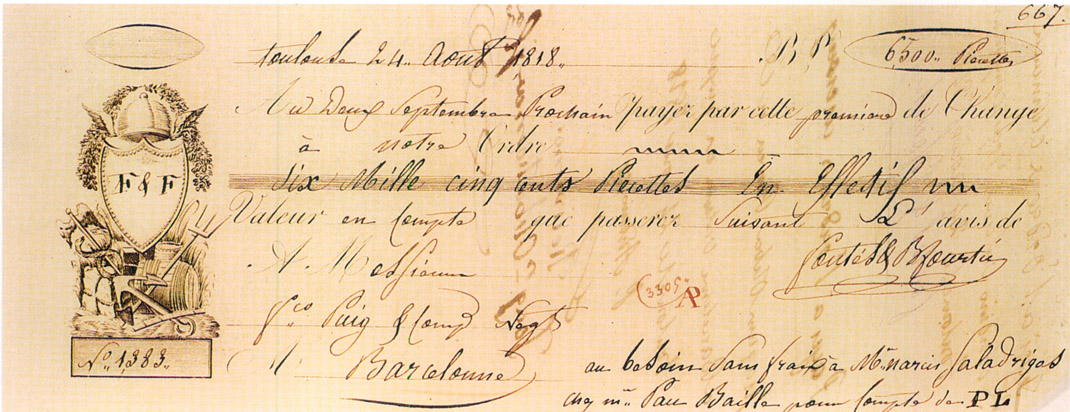 667.
Toulouse 24. Aout 1818. B.P. 6,500. Piecettes
Au Deux Septembre Prochain payez par cette premiere de Change
à notre Ordre
Six Mille cinq cents Piecettes En Effectif
Valeur en Compte que passerez Suivant L'avis de
A Messieurs
F & F
3305 AP
Fco Puig & Comp Negts
A Barcelonne
No. 1383.
au besoin Sans frais à Mr. Narcis Saladrigas
chez Mr. Pau Baille pour Compte de PL